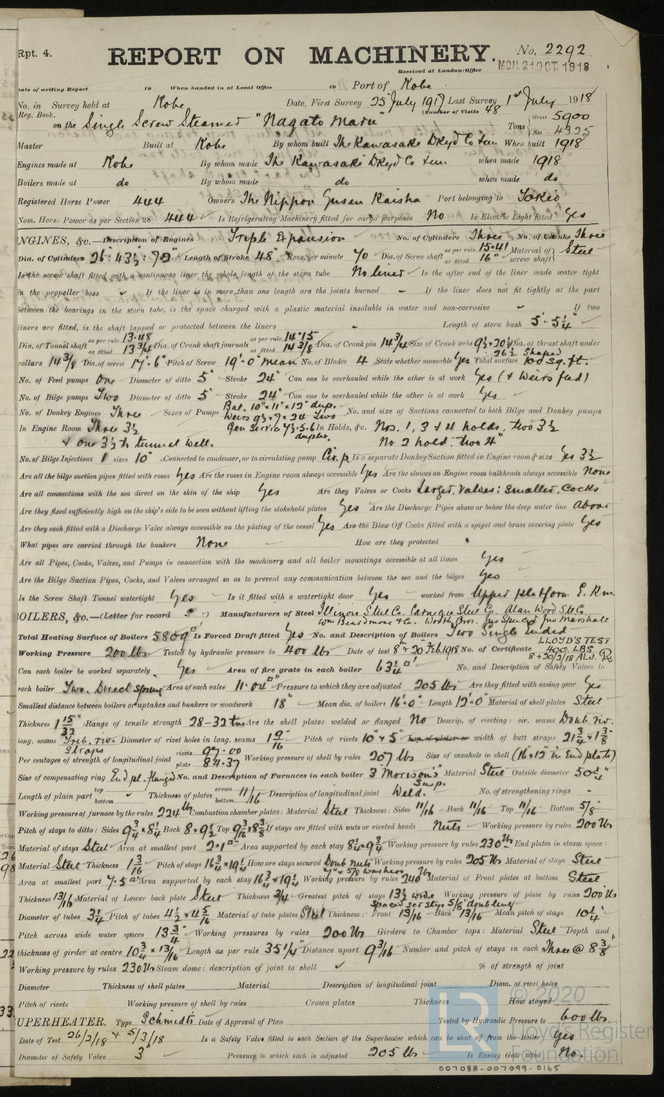 Rpt. 4.
REPORT ON MACHINERY.
No. 2292
MON. 21 OCT. 1918
Received at London Office
Date of writing Report 19 When handed in at Local Office 19 Port of Kobe
No. in Survey held at Kobe Date, First Survey 25 July 1917 Last Survey 1st July 1918
Reg. Book. (Number of Visits 48
on the Single Screw Steamer "Nagato Maru" Tons Gross 5900 Net 4325
Master Built at Kobe By whom built The Kawasaki Dkyd Co Ltd When built 1918
Engines made at Kobe By whom made The Kawasaki Dkyd Co Ltd when made 1918
Boilers made at do By whom made do when made do
Registered Horse Power 444 Owners The Nippon Yusen Kaisha Port belonging to Tokio
Nom. Horse Power as per Section 28 444 Is Refrigerating Machinery fitted for cargo purposes No Is Electric Light fitted Yes
ENGINES, &c.—Description of Engines Triple Expansion No. of Cylinders Three No. of Cranks Three
Dia. of Cylinders Length of Stroke 48" Revs. per minute 70 Dia. of Screw shaft as per rule 15.41 as fitted 16" Material of screw shaft Steel
Is the screw shaft fitted with a continuous liner the whole length of the stern tube No liner Is the after end of the liner made water tight
in the propeller boss If the liner is in more than one length are the joints burned If the liner does not fit tightly at the part
between the bearings in the stern tube, is the space charged with a plastic material insoluble in water and non-corrosive If two
liners are fitted, is the shaft lapped or protected between the liners Length of stern bush 5'-5¼"
Dia. of Tunnel shaft as per rule 13.48 as fitted 13¾ Dia. of Crank shaft journals as per rule 14.15 as fitted 14⅜ Dia. of Crank pin 14¾ Size of Crank webs Dia. of thrust shaft under
collars 14⅜ Dia. of screw 17'-6" Pitch of Screw 19'-0" mean No. of Blades 4 State whether moveable Yes Total surface 100 sq. ft.
No. of Feed pumps One Diameter of ditto 5" Stroke 24" Can one be overhauled while the other is at work Yes (& Weirs feed)
No. of Bilge pumps Two Diameter of ditto 5" Stroke 24" Can one be overhauled while the other is at work Yes
No. of Donkey Engines Three Sizes of Pumps Bal. 10" × 11" × 12" dup. No. and size of Suctions connected to both Bilge and Donkey pumps
In Engine Room Three 3½ In Holds, &c. Nos. 1, 3 & 4 holds, two 3½
& one 3½ to tunnel well. duplex. No 2 hold, two 4"
No. of Bilge Injections 1 sizes 10" Connected to condenser, or to circulating pump Cir. p. Is a separate Donkey Suction fitted in Engine room & size Yes 3½
Are all the bilge suction pipes fitted with roses Yes Are the roses in Engine room always accessible Yes Are the sluices on Engine room bulkheads always accessible None
Are all connections with the sea direct on the skin of the ship Yes Are they Valves or Cocks Larger, Valves: smaller, Cocks
Are they fixed sufficiently high on the ship's side to be seen without lifting the stokehold plates Yes Are the Discharge Pipes above or below the deep water line Above
Are they each fitted with a Discharge Valve always accessible on the plating of the vessel Yes Are the Blow Off Cocks fitted with a spigot and brass covering plate Yes
What pipes are carried through the bunkers None How are they protected
Are all Pipes, Cocks, Valves, and Pumps in connection with the machinery and all boiler mountings accessible at all times Yes
Are the Bilge Suction Pipes, Cocks, and Valves arranged so as to prevent any communication between the sea and the bilges Yes
Is the Screw Shaft Tunnel watertight Yes Is it fitted with a watertight door Yes worked from Upper platform E. Rm
BOILERS, &c.—(Letter for record S) Manufacturers of Steel Illinois Steel Co. Carnegie Steel Co. Alan Wood
Total Heating Surface of Boilers Is Forced Draft fitted Yes No. and Description of Boilers Two Single ended
LLOYD'S TEST
Working Pressure 200 lbs Tested by hydraulic pressure to 400 lbs Date of test No. of Certificate 400 LBS
Can each boiler be worked separately Yes Area of fire grate in each boiler 63¼ No. and Description of Safety Valves to
each boiler Two. Direct Spring Area of each valve 11.04 Pressure to which they are adjusted 205 lbs Are they fitted with easing gear Yes
Smallest distance between boilers or uptakes and bunkers or woodwork 18" Mean dia. of boilers 16'-0" Length 12'-0" Material of shell plates Steel
Thickness 1 15/32 Range of tensile strength 28-32 tns Are the shell plates welded or flanged No Descrip. of riveting: cir. seams Doub. riv.
long. seams Treb. riv. Diameter of rivet holes in long. seams Pitch of rivets width of butt straps
Straps
Per centages of strength of longitudinal joint rivets plate 84.37 Working pressure of shell by rules 207 lbs Size of manhole in shell (16×12 in End plate)
Size of compensating ring End pl. flanged No. and Description of Furnaces in each boiler 3 Morison's Susp. Material Steel Outside diameter 50¼"
Length of plain part top bottom Thickness of plates crown bottom 11/16 Description of longitudinal joint Weld. No. of strengthening rings
Working pressure of furnace by the rules 224 lbs Combustion chamber plates: Material Steel Thickness: Sides 11/16 Back 11/16 Top 11/16 Bottom 5/8
Pitch of stays to ditto: Sides Back Top If stays are fitted with nuts or riveted heads Nuts Working pressure by rules 200 lbs
Material of stays Steel Area at smallest part Area supported by each stay Working pressure by rules 230 lbs End plates in steam space:
Material Steel Thickness Pitch of stays How are stays secured Doub nuts Working pressure by rules 205 lbs Material of stays Steel
Area at smallest part Area supported by each stay Working pressure by rules 240 lbs Material of Front plates at bottom Steel
Thickness 13/16 Material of Lower back plate Steel Thickness Greatest pitch of stays 13½ wide Working pressure of plate by rules 200 lbs
Diameter of tubes 3¼ Pitch of tubes Material of tube plates Steel Thickness: Front 13/16 Back 13/16 Mean pitch of stays
Pitch across wide water spaces Working pressures by rules 200 lbs Girders to Chamber tops: Material Steel Depth and
thickness of girder at centre Length as per rule 35¼" Distance apart 9 3/16 Number and pitch of stays in each Three @ 8⅜
Working pressure by rules 230 lbs Steam dome: description of joint to shell % of strength of joint
Diameter Thickness of shell plates Material Description of longitudinal joint Diam. of rivet holes
Pitch of rivets Working pressure of shell by rules Crown plates Thickness How stayed
SUPERHEATER. Type Schmidts Date of Approval of Plan Tested by Hydraulic Pressure to 600 lbs
Date of Test 26/2/18 & 5/3/18 Is a Safety Valve fitted to each Section of the Superheater which can be shut off from the Boiler Yes
Diameter of Safety Valve 3" Pressure to which each is adjusted 205 lbs Is Easing Gear fitted No.
© 2020
Lloyd's Register
Foundation
007088-007099-0165